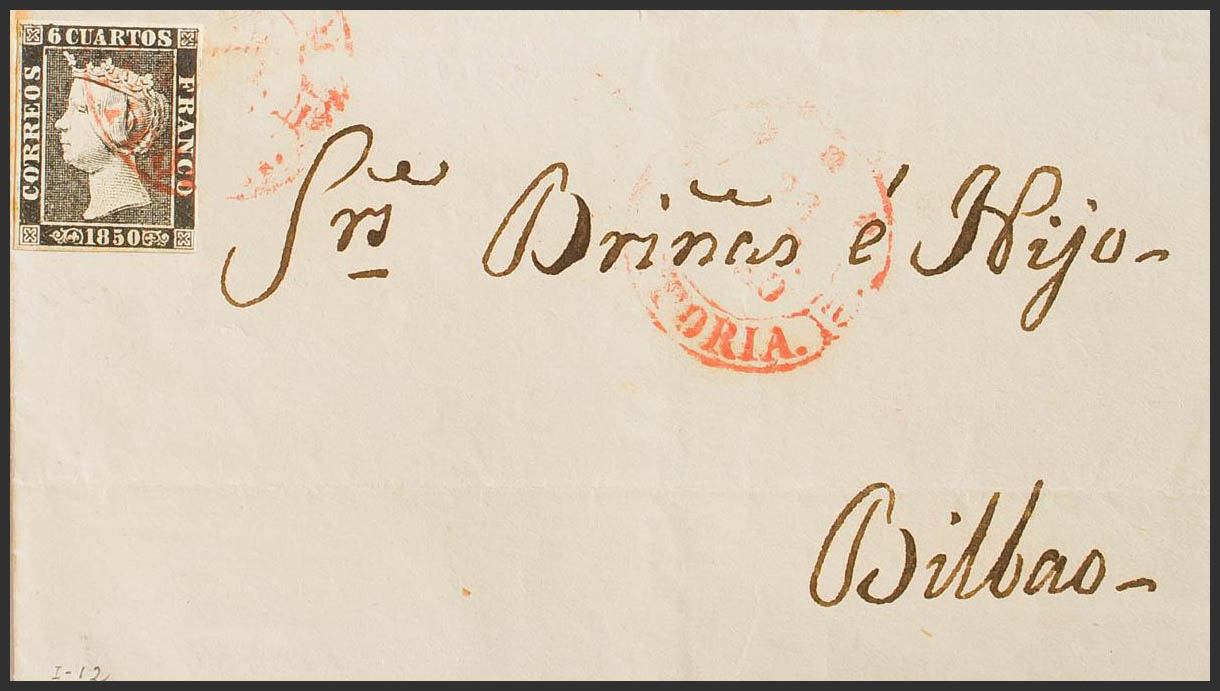 6 CUARTOS
CORREOS
FRANCO
1850
Srs Briñas é Hijo
ORIA.
Bilbao
I-12